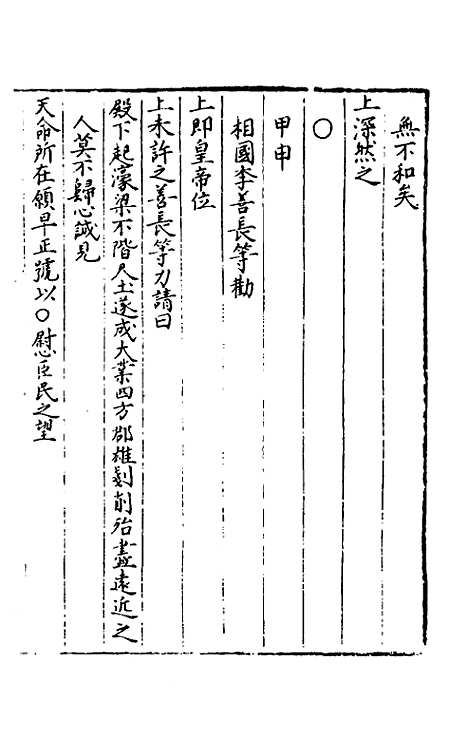 無不和矣
上深然之
○
甲申
相國李善長等勸
上即皇帝位
上未許之善長等力請曰
殿下起濠梁不階尺土遂成大業四方郡雄剗削殆盡遠近之
人莫不歸心誠見
天命所在願早正號以○慰臣民之望